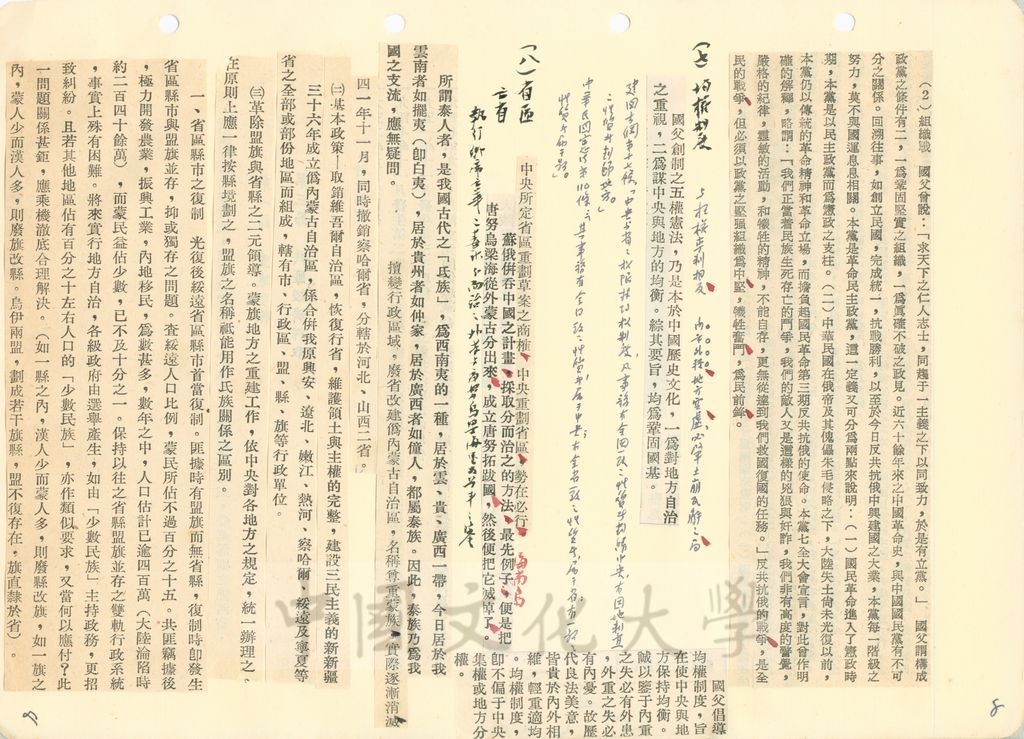 (2)組織戰　國父曾說：「求天下之仁人志士，同趨于一主義之下以同致力，於是有立黨。」　國父謂構成
政黨之條件有二，一為鞏固堅實之組織，一為眞確不破之政見。近六十餘年來之中國革命史，與中國國民黨有不可
分之關係。回溯往事，如創立民國，完成統一，抗戰勝利，以至於今日反共抗俄中興建國之大業，本黨每一階級之
努力，莫不與國運息息相關。本黨是革命民主政黨，這一定義又可分爲兩點來說明：(一)國民革命進入了憲政時
期，本黨是以民主政黨而爲憲政之支柱。(二)中華民國在俄帝及其傀儡朱毛侵略之下，大陸失土尚未光復以前，
本黨仍以傳統的革命精神和革命立場，而擔負起國民革命第三期反共抗俄的使命。本黨七全大會宣言，對此曾作明
確的解釋，略謂：「我們正當着民族生死存亡的鬥爭，我們的敵人又是這樣的兇狠與奸詐，我們非有高度的警覺，
嚴格的紀律，靈敏的活動，和犧牲的精神，不能自存，更無從達到我們救國復國的任務。」反共抗俄的戰爭，是全
民的戰爭，但必須以政黨之堅强組織爲中堅，犧牲奮鬥，爲民前鋒。
(七)均權制度
國父創制之五權憲法，乃是本於中國歷史文化，一爲對地方自治
之重視，二爲謀中央與地方的均衡。綜其要旨，均爲鞏固國基。
建國大綱第十七條
國父倡導
均權制度，旨
在使中央與地
方保持均衡。
誠以鑒于內重
之失必有外患
，外重之失必
有內憂。故歷
代良法美意，
皆貴於內外相
維，輕重適均
。均權制度，
即不偏于中央
集權或地方分
權。
(八)省區
中央所定省區重劃草案之商榷，中央重劃省區，勢在必行
海南島
蘇俄倂吞中國之計畫，採取分而治之的方法，最先例子，便是把
唐努烏梁海從外蒙古分出來，成立唐努拓跋國，然後便把它滅掉了。
所謂泰人者，是我國古代之「氐族」，爲西南夷的一種，居於雲、貴、廣西一帶，今日居於我
雲南者如擺夷（卽白夷），居於貴州者如仲家，居於廣西者如僮人，都屬泰族。因此，泰族乃爲我
國之支流，應無疑問。
擅變行政區域，廢省改建僞內蒙古自治區，名稱尊重蒙族，實際逐漸消滅
四一年十一月，同時撤銷察哈爾省，分轄於河北、山西二省。
㈡基本政策—取銷維吾爾自治區，恢復行省，維護領土與主權的完整，建設三民主義的新新疆
三十六年成立僞內蒙古自治區，係合倂我原興安、遼北、嫩江、熱河、察哈爾、綏遠及寧夏等
省之全部或部份地區而組成，轄有市、行政區、盟、縣、旗等行政單位。
㈢革除盟旗與省縣之二元領導。蒙旗地方之重建工作，依中央對各地方之規定，統一辦理之。
在原則上應一律按縣境劃之，盟旗之名稱祇能用作氏族關係之區別。
一、省區縣市之復制　光復後綏遠省區縣市首當復制。匪據時有盟旗而無省縣，復制時卽發生
省區縣市與盟旗並存，抑或獨存之問題。查綏遠人口比例，蒙民所佔不過百分之十五。共匪竊據後
，極力開發農業，振興工業，內地移民，爲數甚多，數年之中，人口估計已逾四百萬（大陸淪陷時
約二百四十餘萬），而蒙民益佔少數，已不及十分之一。保持以往之省縣盟旗並存之雙軌行政系統
，事實上殊有困難。將來實行地方自治，各級政府由選舉產生，如由「少數民族」主持政務，更招
致糾紛。且若其他地區佔有百分之十左右人口的「少數民族」，亦作類似要求，又當何以應付？此
一問題關係甚鉅，應乘機澈底合理解決。（如一縣之內，漢人少而蒙人多，則廢縣改旗，如一旗之
內，蒙人少而漢人多，則廢旗改縣。烏伊兩盟，劃成若干旗縣，盟不復存在，旗直隸於省）。
中國文化大學
8